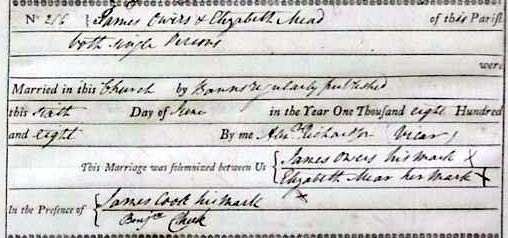 No 216 James Owers & Elizabeth Mead of this Parish
both single Persons
were
Married in this Church by Banns regularly published
this sixth Day of June in the Year One Thousand eight Hundred
and eight By me Vicar
This Marriage was solemnized between Us { James Owers his mark X
Elizabeth Mear her mark X
In the Presence of { James Cook his mark X
Benjn Cheek